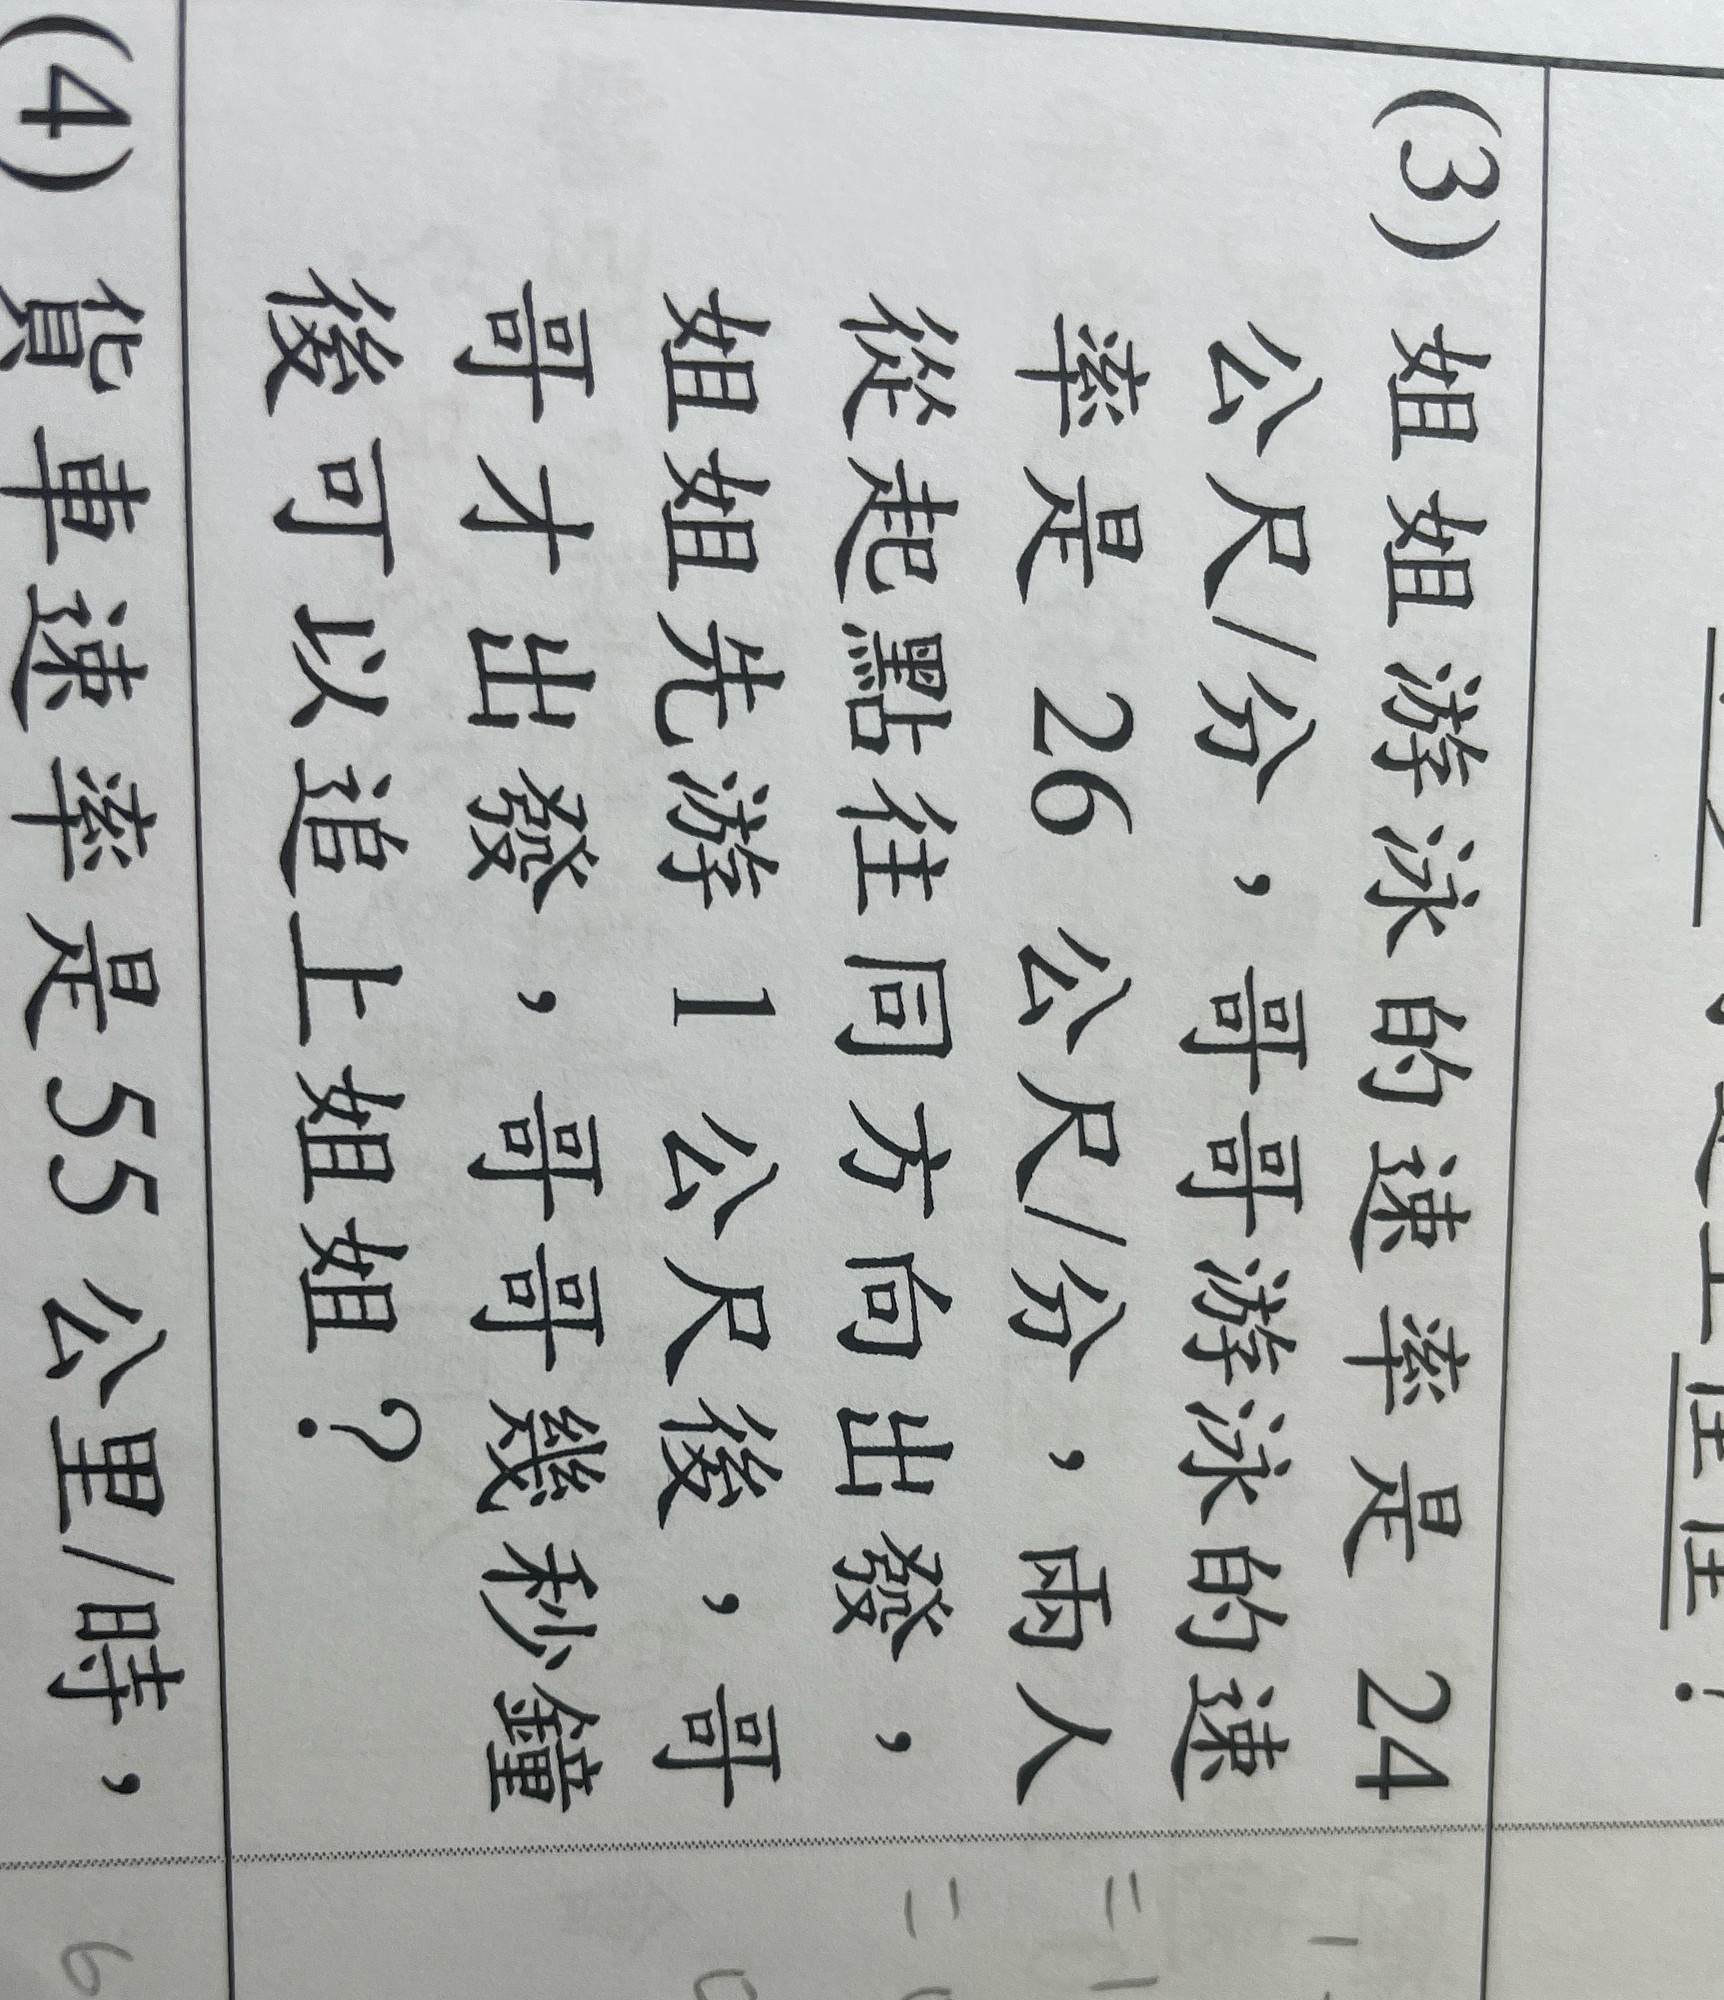 (3) 姐姐游泳的速率是 24
公尺/分，哥哥游泳的速
率是 26 公尺/分，兩人
從起點往同方向出發，
姐姐先游 1 公尺後，哥
哥才出發，哥哥幾秒鐘
後可以追上姐姐？
(4) 貨車速率是 55 公里/時，
6